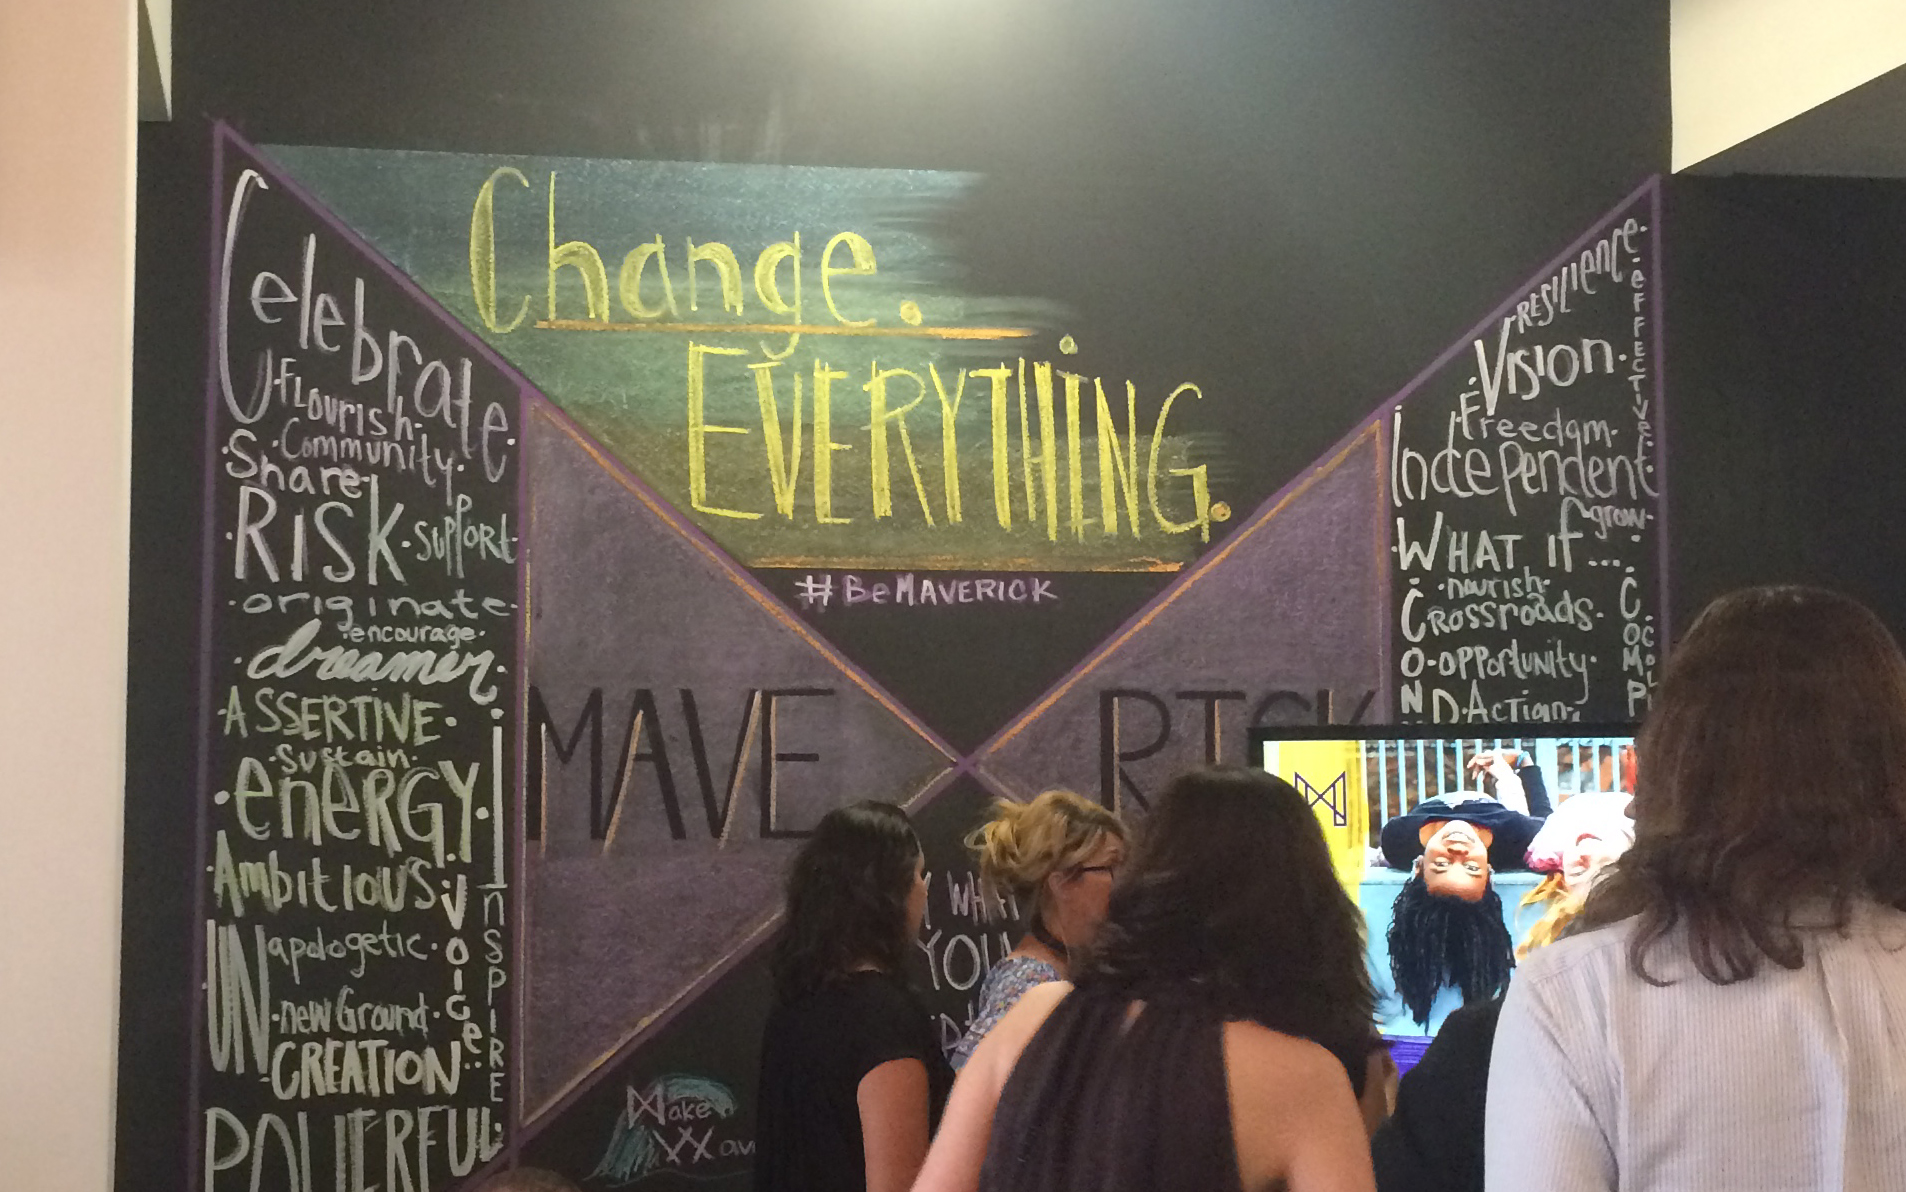 Change.
EVERYTHING.
#BeMAVERICK
Celebrate.
Flourish.
Community.
Share
RISK. support.
originate.
encourage.
dreamer.
ASSERTIVE.
Sustain.
energy.
Ambitious.
Voice.
Inspire
UNapologetic.
newGround.
CREATION
POWERFUL
MAVE RISK
WHAT
YOU
Make
resilience.
effective.
Vision.
Freedom.
Independent.
grow.
WHAT IF...
nourish.
CROSSROADS.
opportunity.
Action